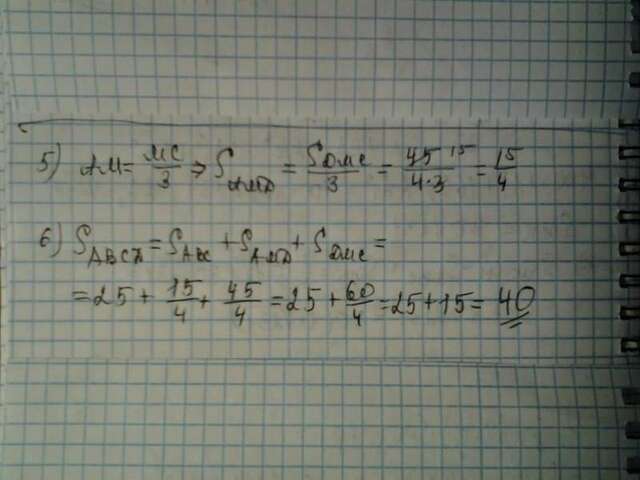 5) AM = MC/3 ⇒ S_AMD = S_DMC/3 = 45 15/4·3 = 15/4
6) S_ABCD = S_ABC + S_AMD + S_DMC =
= 25 + 15/4 + 45/4 = 25 + 60/4 = 25 + 15 = 40